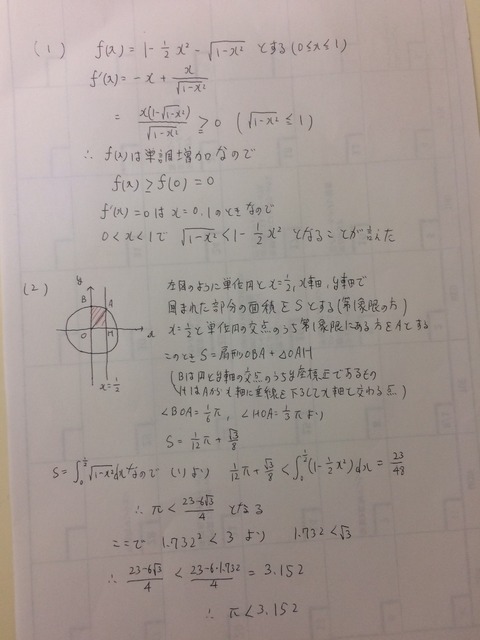 (1) f(x) = 1 - 1/2 x² - √(1-x²) とする (0≦x≦1)
f'(x) = -x + x/√(1-x²)
= x(1-√(1-x²))/√(1-x²) ≧ 0 (√(1-x²) ≦ 1)
∴ f(x)は単調増加なので
f(x) ≧ f(0) = 0
f'(x)=0は x=0.1のときなので
0<x<1で √(1-x²) < 1 - 1/2 x² となることが言えた
(2)
y
B A
O H x
x=1/2
左図のように単位円と x=1/2, x軸, y軸で
囲まれた部分の面積をSとする(第1象限の方)
x=1/2と単位円の交点のうち第1象限にある方をAとする
このとき S = 扇形OBA + △OAH
(Bは円とy軸の交点のうちy座標正であるもの
HはAからx軸に垂線を下ろしてx軸と交わる点)
∠BOA = 1/6 π, ∠HOA = 1/3 π より
S = 1/12 π + √3/8
S = ∫₀^(1/2) √(1-x²) dx なので (1)より 1/12 π + √3/8 < ∫₀^(1/2) (1 - 1/2 x²) dx = 23/48
∴ π < (23-6√3)/4 となる
ここで 1.732² < 3 より 1.732 < √3
∴ (23-6√3)/4 < (23-6・1.732)/4 = 3.152
∴ π < 3.152